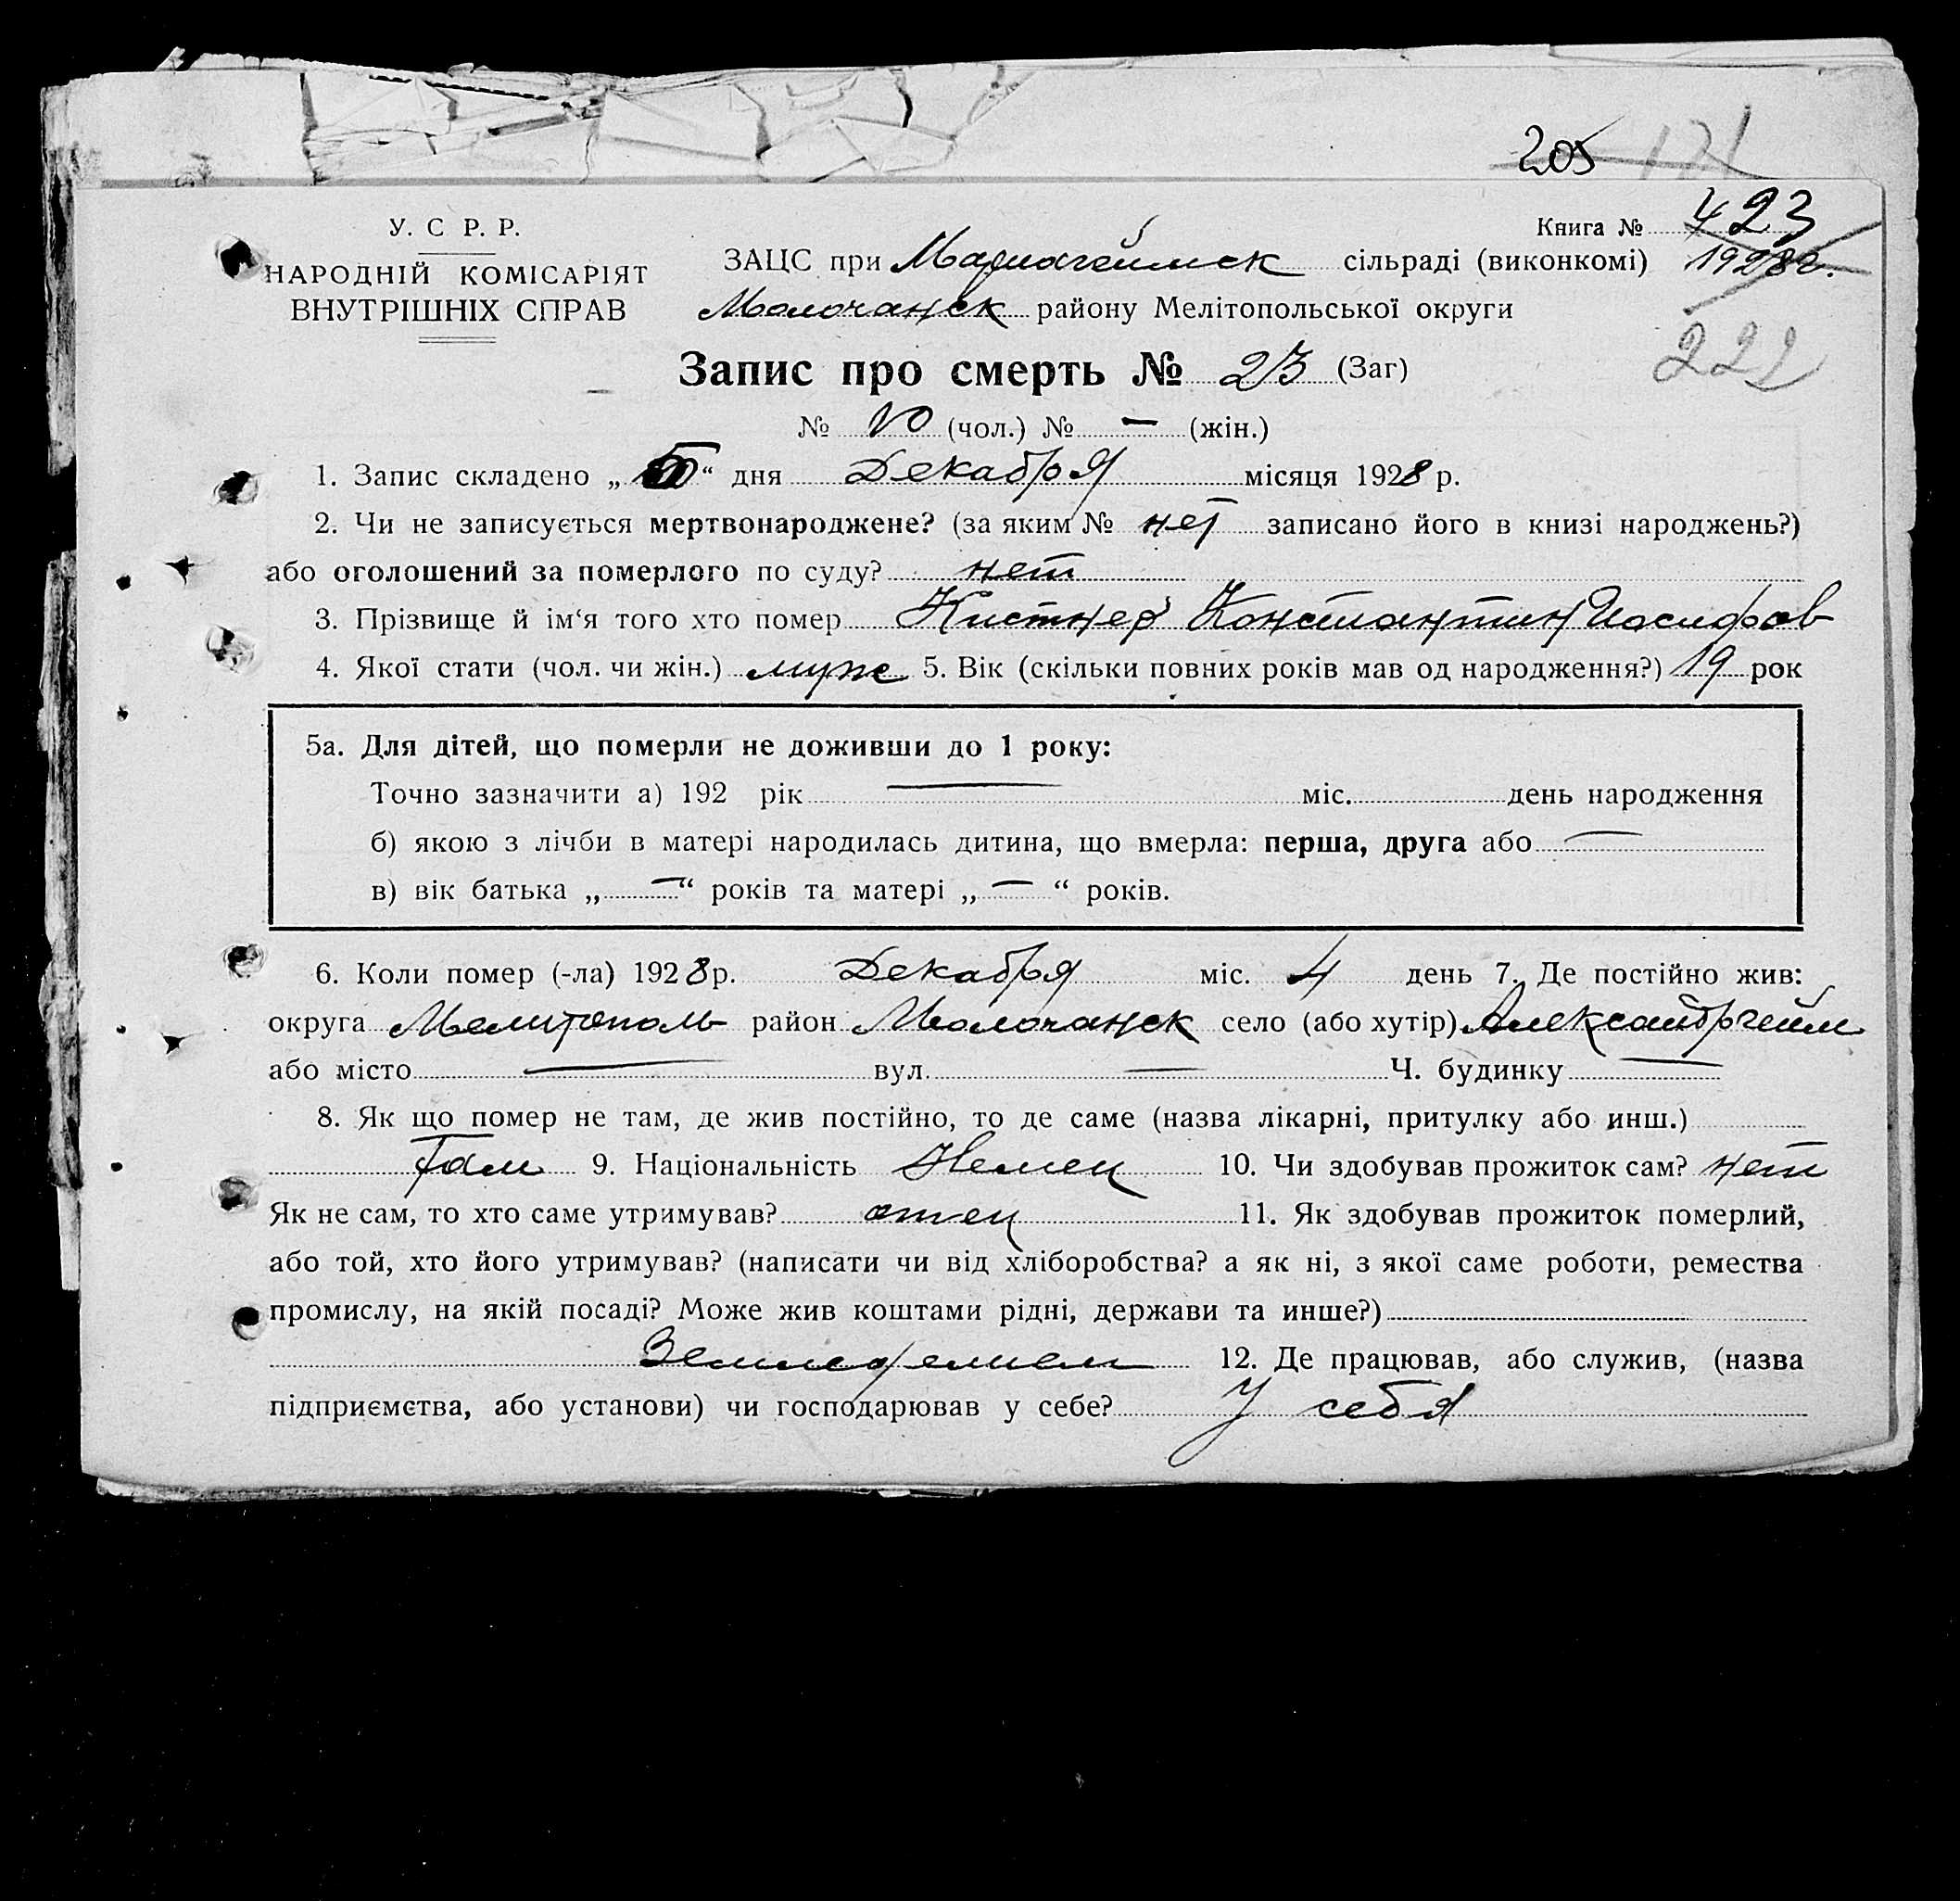 205 171
У. С Р. Р.
НАРОДНІЙ КОМІСАРІЯТ
ВНУТРІШНІХ СПРАВ
Книга № 423
1928г.
222
ЗАЦС при Мариагеймск сільраді (виконкомі)
Молочанск району Мелітопольської округи
Запис про смерть № 23 (Заг)
№ 10 (чол.) № — (жін.)
1. Запис складено „ “ дня Декабря місяця 1928 р.
2. Чи не записується мертвонароджене? (за яким № нет записано його в книзі народжень?)
або оголошений за померлого по суду? нет
3. Прізвище й ім‘я того хто помер Кистнер Константин Иосифов
4. Якої стати (чол. чи жін.) муж 5. Вік (скільки повних років мав од народження?) 19 рок
5а. Для дітей, що померли не доживши до 1 року:
Точно зазначити а) 192 рік — міс. день народження
б) якою з лічби в матері народилась дитина, що вмерла: перша, друга або —
в) вік батька „ — “ років та матері „ — “ років.
6. Коли помер (-ла) 1928 р. Декабря міс. 4 день 7. Де постійно жив:
округа Мелитополь район Молочанск село (або хутір) Александргейм
або місто — вул. — Ч. будинку —
8. Як що помер не там, де жив постійно, то де саме (назва лікарні, притулку або инш.)
Там 9. Національність Немец 10. Чи здобував прожиток сам? нет
Як не сам, то хто саме утримував? отец 11. Як здобував прожиток померлий,
або той, хто його утримував? (написати чи від хліборобства? а як ні, з якої саме роботи, ремества
промислу, на якій посаді? Може жив коштами рідні, держави та инше?)
Земледелием 12. Де працював, або служив, (назва
підприємства, або установи) чи господарював у себе? У себя